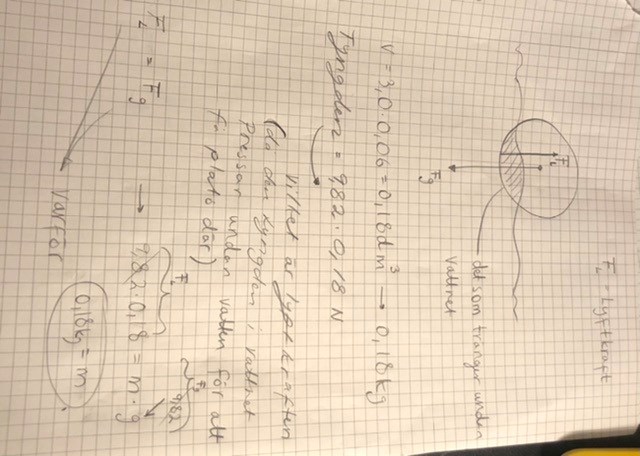 FL = Lyftkraft
FL
Fg
det som tränger undan
vattnet
V = 3,0·0,06 = 0,18dm³ → 0,18kg
Tyngden = 9,82 · 0,18 N
Vilket är lyftkraften
(då den tyngden i vattnet
Pressar undan vatten för att
få plats där)
FL = Fg → 9,82·0,18 = m·g
FL
Fg
9,82
Varför
0,18kg = m